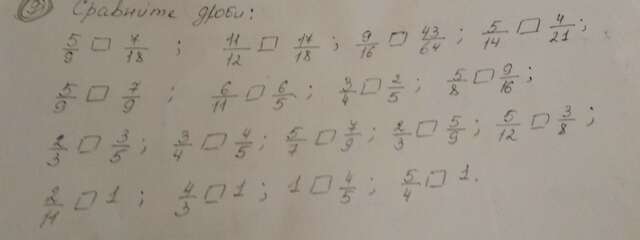 9) Сравните дроби:
5/9 □ 7/18 ; 11/12 □ 17/18 ; 9/16 □ 43/64 ; 5/14 □ 4/21 ;
5/9 □ 7/9 ; 6/11 □ 6/5 ; 3/4 □ 2/5 ; 5/8 □ 9/16 ;
2/3 □ 3/5 ; 3/4 □ 4/5 ; 5/7 □ 7/9 ; 2/3 □ 5/9 ; 5/12 □ 3/8 ;
2/11 □ 1 ; 4/3 □ 1 ; 1 □ 4/5 ; 5/4 □ 1.